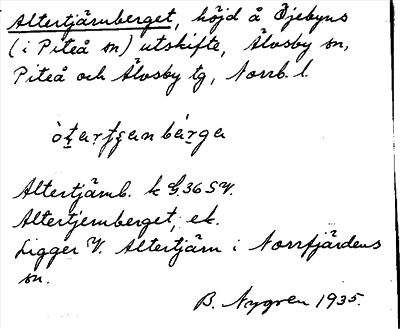 Altertjärnberget, höjd å Öjebyns
(i Piteå sn) utskifte, Älvsby sn,
Piteå och Älvsby tg, Norrb. l.
Altertjärnb. k G. 36 SV.
Altertjernberget, ek.
Ligger V. Altertjärn i Norrfjärdens
sn.
B. Nygren 1935.